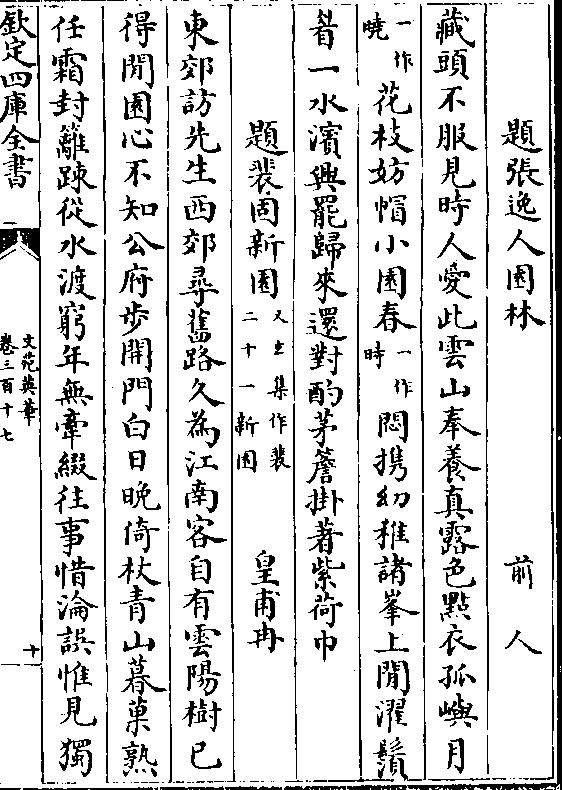 題張逸人園林　前人
藏頭不服見時人愛此雲山奉養真露色點衣孤嶼月
一作曉花枝妨帽小園春一作時悶携幼稚諸峯上閒濯鬚
眉一水濱興罷歸來還對酌茅簷掛著紫荷巾
題裴固新園又玄集作裴二十一新園　皇甫冉
東郊訪先生西郊尋舊路久為江南客自有雲陽樹已
得閒園心不知公府步開門白日晚倚杖青山暮菓熟
任霜封籬踈從水渡窮年無牽綴往事惜淪誤惟見獨
欽定四庫全書
文苑英華
卷三百十七
十